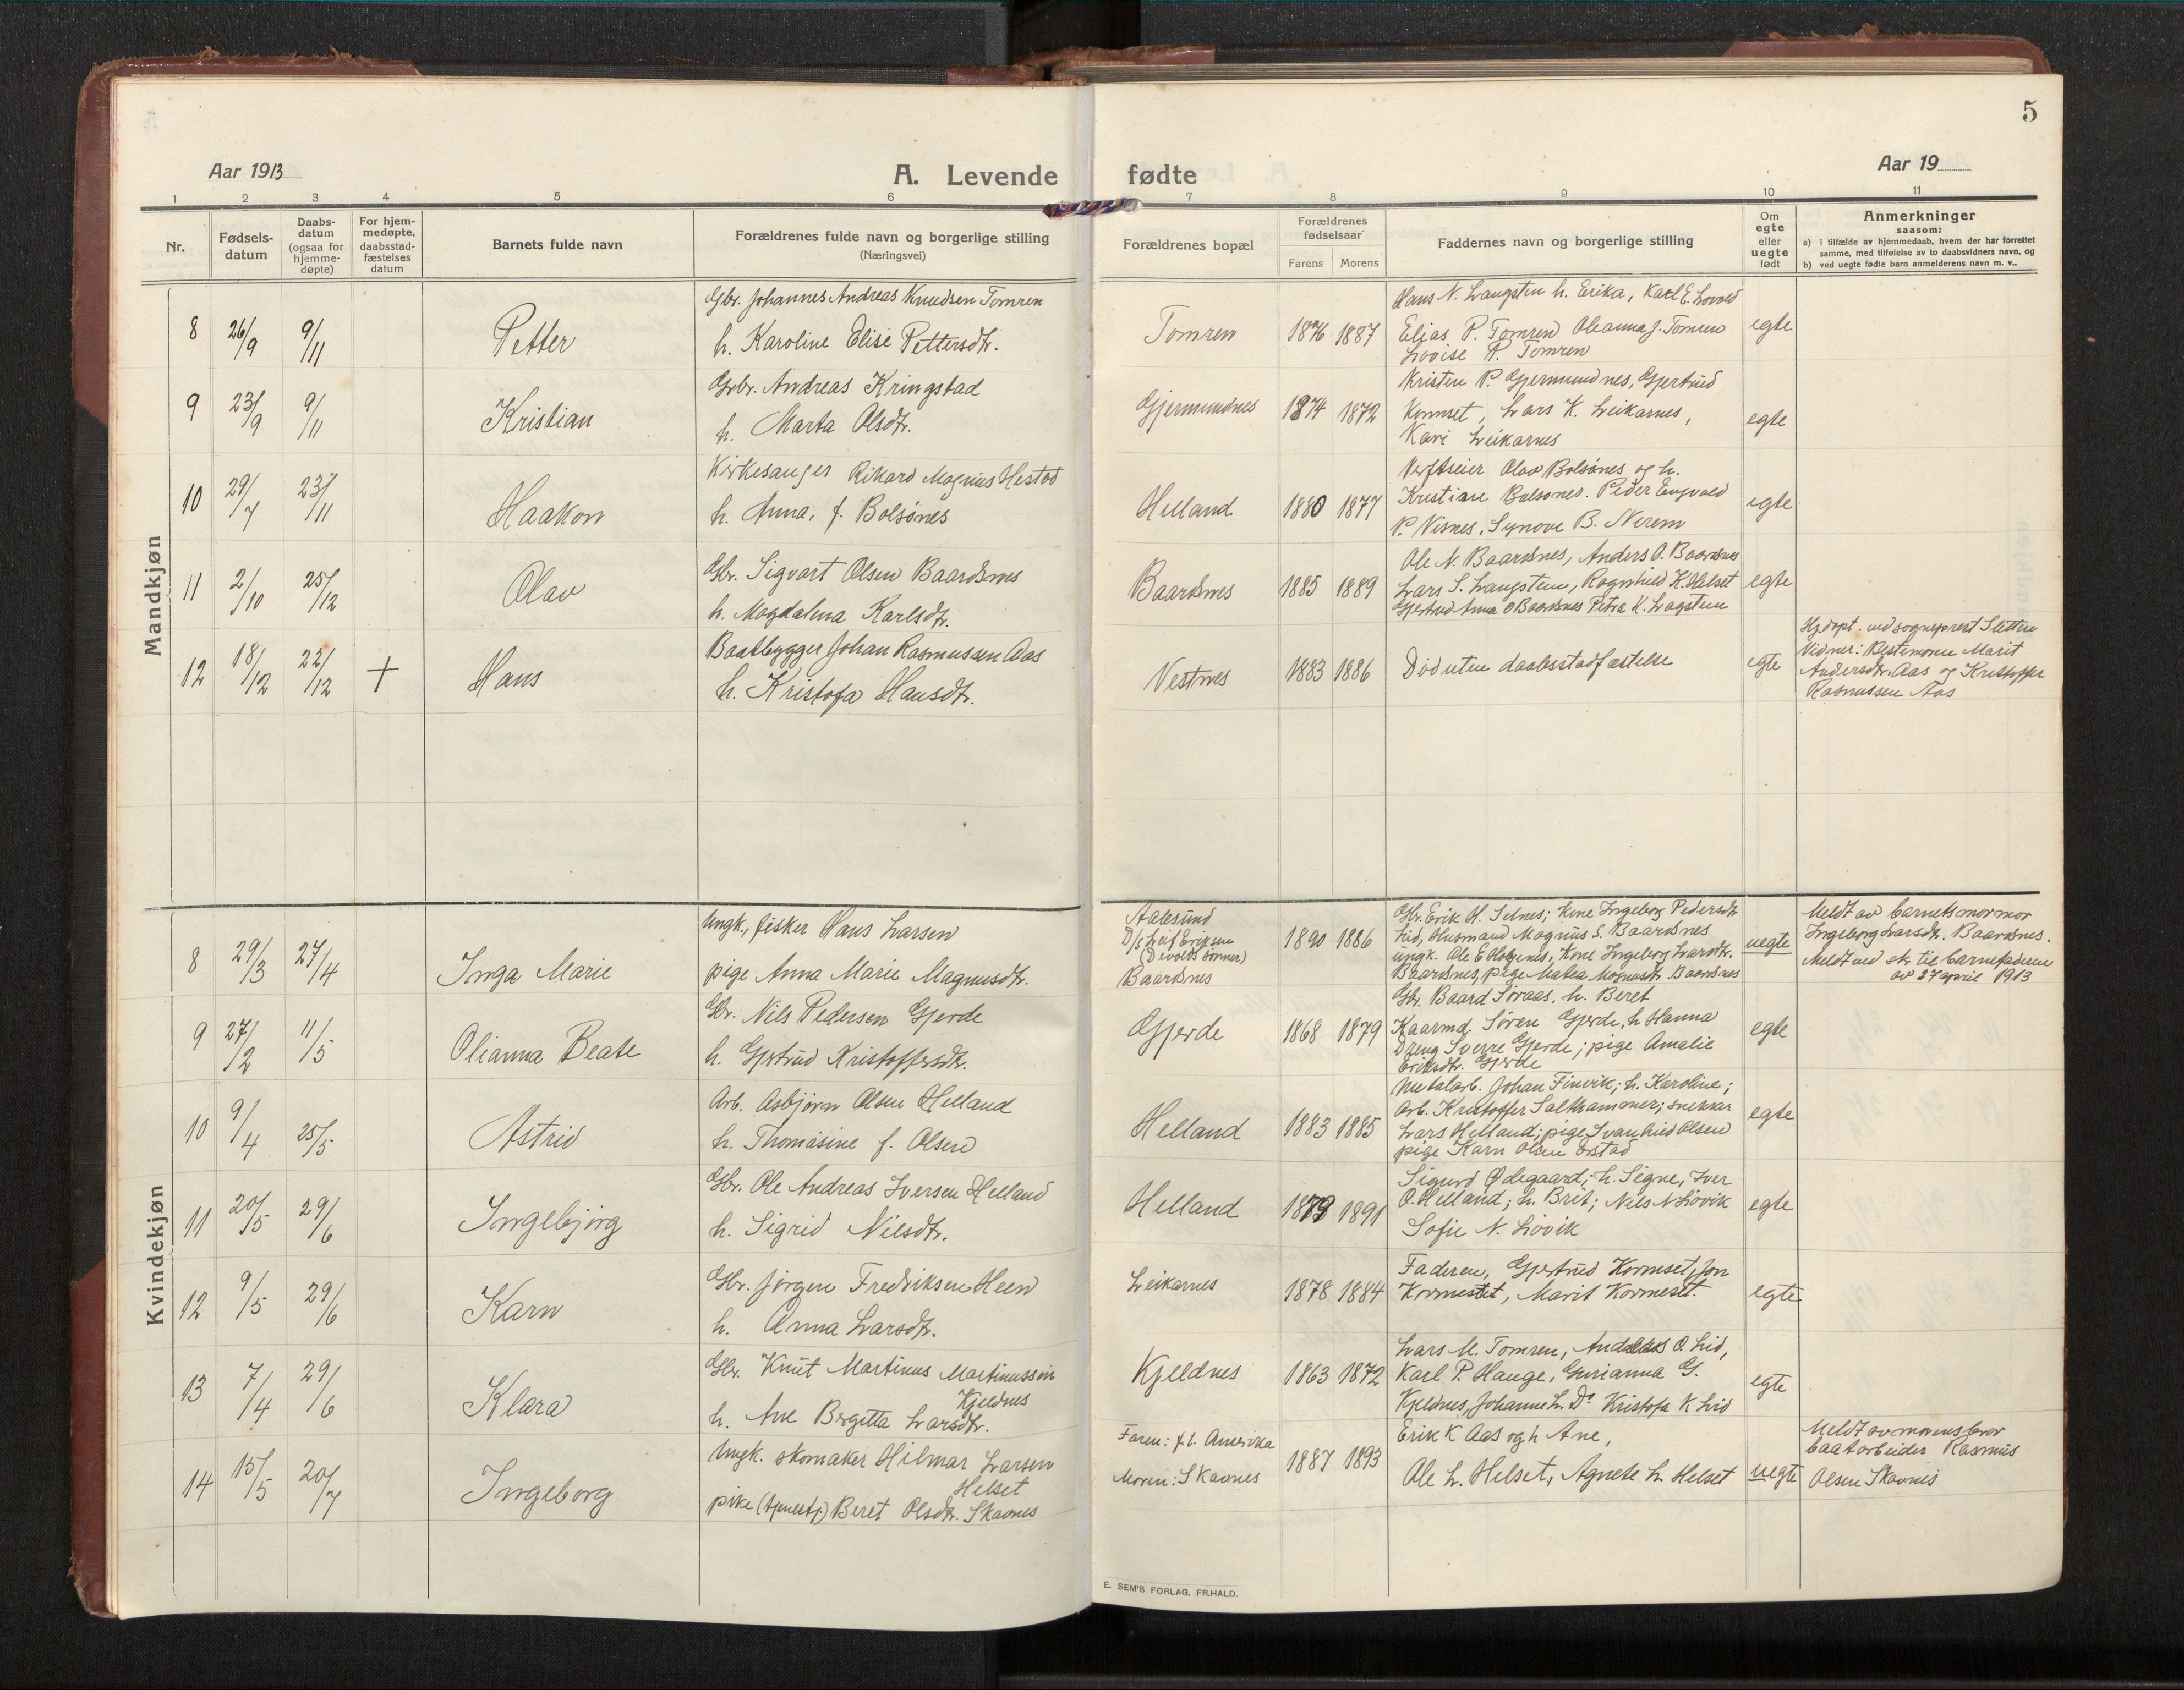 5
Aar 1913
A. Levende
fødte
Aar 19
1 2 3 4 5 6 7 8 9 10 11
Nr.
Fødsels-
datum
Daabs-
datum
(ogsaa for
hjemme-
døpte)
For hjem-
medøpte,
daabsstad-
fæstelses
datum
Barnets fulde navn
Forældrenes fulde navn og borgerlige stilling
(Næringsvei)
Forældrenes bopæl
Forældrenes
fødselsaar
Farens Morens
Faddernes navn og borgerlige stilling
Om
egte
eller
uegte
født
Anmerkninger
saasom:
a) i tilfælde av hjemmedaab, hvem der har forrettet
samme, med tilføielse av to daabsvidners navn, og
b) ved uegte fødte barn anmelderens navn m. v..
Mandkjøn
8 26/9 9/11 Petter
Gbr. Johannes Andreas Knudsen Tomren
h. Karoline Elise Pettersdtr.
Tomren 1876 1887
Hans N. Langsten h. Erika, Karl E. Lovold
Elias P. Tomren Oleanna J. Tomren
Lovise P. Tomren
egte
9 23/9 9/11 Kristian
Gbr. Andreas Kringstad
h. Marta Olsdtr.
Gjermundnes 1874 1872
Kristen P. Gjermundnes, Gjertrud
Kormset, Lars K. Leikarnes,
Kari Leikarnes
egte
10 29/7 23/11 Haakon
Kirkesanger Rikard Magnus Hestad
h. Anna, f. Bolsönes
Helland 1880 1877
Verftseier Olav Bolsönes og h.
Kristiane Bolsönes. Peder Engvald
P. Visnes, Synove B. Nerem
egte
11 2/10 25/12 Olav
Gbr. Sigvart Olsen Baardsnes
h. Magdalena Karlsdtr.
Baardsnes 1885 1889
Ole N. Baardsnes, Anders O. Baardsnes
Lars S. Langsten, Ragnhild K. Helset
Gjertrud Anna O Baardsnes Petra K. Lagsten
egte
12 18/12 22/12 + Hans
Baatbygger Johan Rasmussen Aas
h. Kristofa Hansdtr.
Vestnes 1883 1886
Död uten daabsstadfæstelse
egte
Hjdöpt. ved sogneprest Sletten
Vidner: Bestemoren Marit
Andersdtr. Aas og Kristoffer
Rasmussen Aas
Kvindekjøn
8 29/3 27/4 Inga Marie
Ungk., fisker Hans Larsen
pige Anna Marie Magnusdtr.
Aalesund
D/s Leif Eriksen
Baardsnes
1890 1886
Gbr. Erik H. Selnes; kone Ingeborg Pedersdtr
Lid, Husmand Magnus S. Baardsnes
ungk. Ole E Helgenes, kone Ingeborg Larsdtr.
Baardsnes, pige Matea Magnusdtr. Baardsnes
uegte
Meldt av barnets mormor
Ingeborg Larsdtr. Baardsnes.
Meldt ved skr til barnefaderen
av 27 april 1913
9 27/2 11/5 Olianna Beate
Gbr. Nils Pedersen Gjerde
h. Gjertrud Kristoffersdtr.
Gjerde 1868 1879
Gbr. Baard Söraas, h. Beret
Kaarmd. Sören Gjerde, h Hanna
Dreng Sverre Gjerde; pige Amalie
Eriksdtr. Gjerde
egte
10 9/4 25/5 Astrid
Arb. Asbjörn Olsen Helland
h. Thomasine f. Olsen
Helland 1883 1885
Metalarb. Johan Finvik; h. Karoline;
Arb. Kristoffer Salthammer; snekkar
Lars Helland; pige Svanhild Olsen
pige Karn Olsen Örstad
egte
11 20/5 29/6 Ingebjörg
Gbr. Ole Andreas Iversen Helland
h. Sigrid Nilsdtr.
Helland 1879 1891
Sigurd Ödegaard; h. Signe, Iver
O. Helland; h. Brit; Nils N Lövik
Sofie N. Lövik
egte
12 9/5 29/6 Karn
Gbr. Jörgen Fredriksen Heen
h. Anna Larsdtr.
Leikarnes 1878 1884
Faderen, Gjertrud Kormset, Jon
Kormeset, Marit Kormeset.
egte
13 7/4 29/6 Klara
Gbr. Knut Martinus Martinussen
Kjeldnes
h. Ane Bergitta Larsdtr.
Kjeldnes 1863 1872
Lars M. Tomren, Andreas O. Lid,
Karl P. Hauge, Gurianna G.
Kjeldnes, Johanne L. Do Kristofa K Lid
egte
14 15/5 20/7 Ingeborg
Ungk. skomaker Hilmar Larsen
Helset
pike (tjenestp) Beret Olsdtr. Skavnes
Faren: f.t. Amerika
Moren: Skavnes
1887 1893
Erik K Aas og h Ane,
Ole L. Helset, Agnete L. Helset
uegte
Meldt av morens bror
baatarbeider Rasmus
Olsen Skavnes
E. SEM'S FORLAG, FR.HALD.